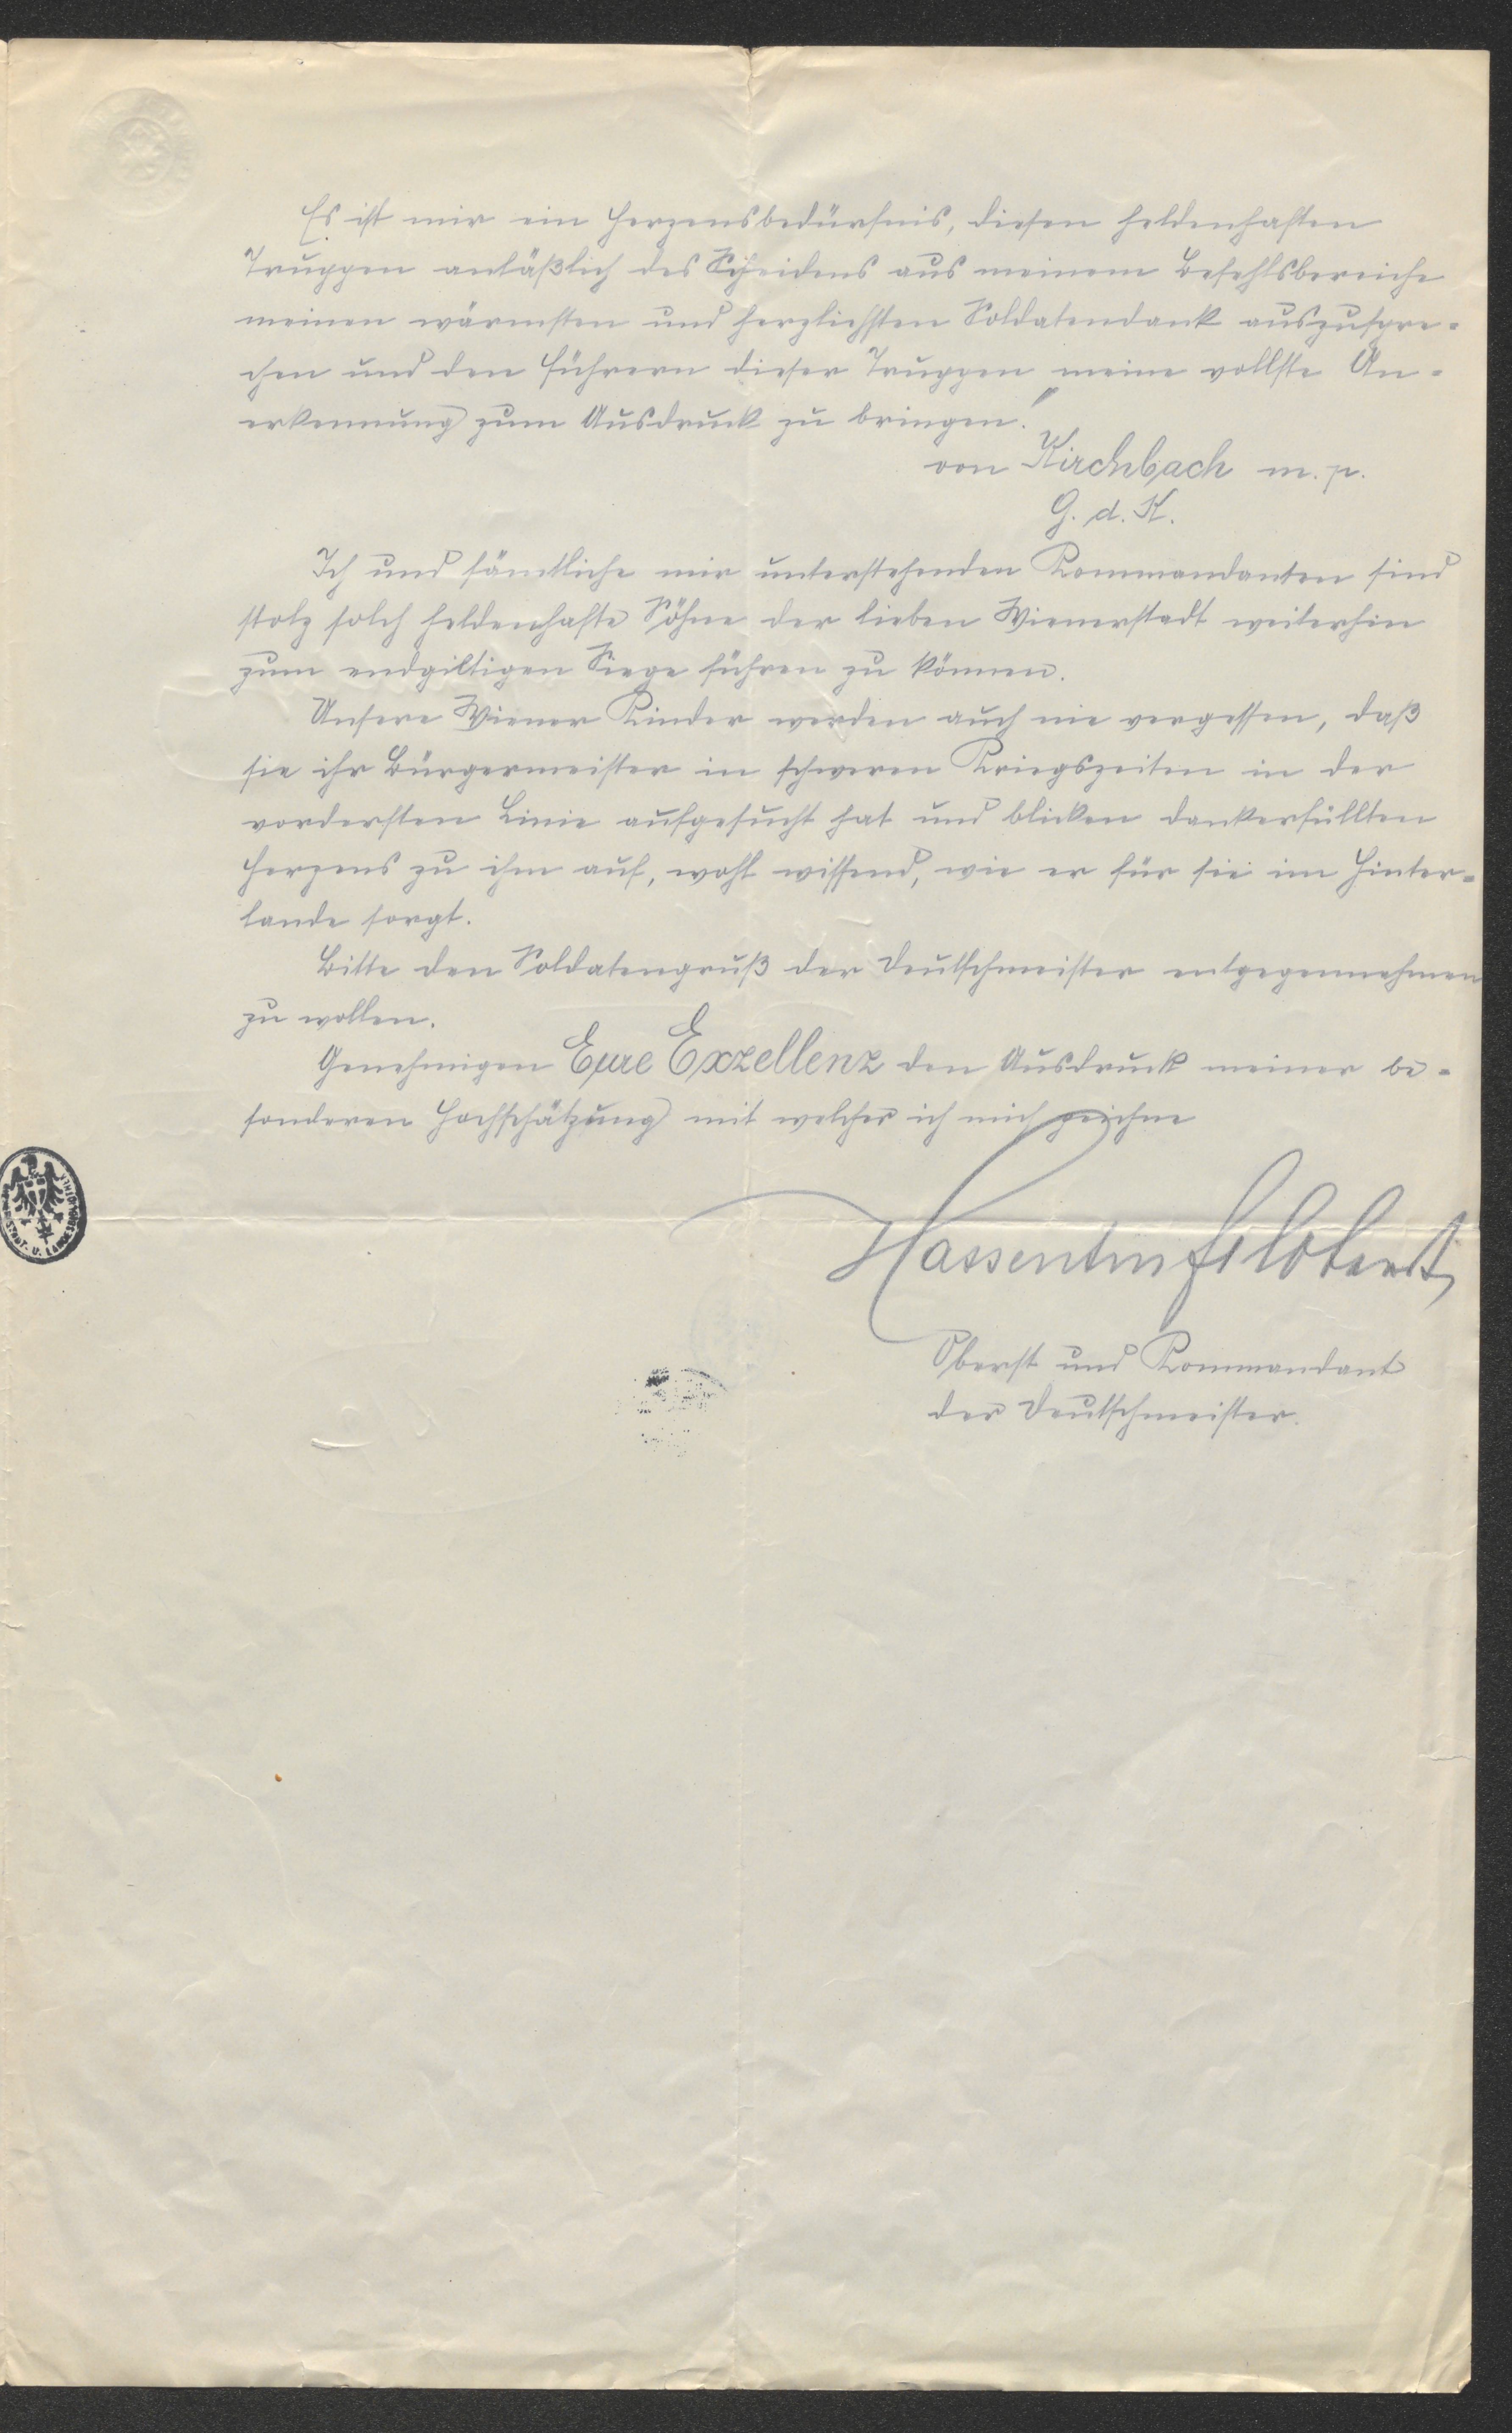 Es ist mir ein Herzensbedürfnis, diesen heldenhaften
Truppen anläßlich des Scheidens aus meinem Befehlsbereiche
meinen wärmsten und herzlichsten Soldatendank auszuspre-
chen und den Führern dieser Truppen meine vollste An-
erkennung zum Ausdruck zu bringen!"
von Kirchbach m. p.
G. d. K.
Ich und sämtliche mir unterstehenden Kommandanten sind
stolz solch heldenhafte Söhne der lieben Wienerstadt weiterhin
zum endgiltigen Siege führen zu können.
Unsere Wiener Kinder werden auch nie vergessen, daß
sie ihr Bürgermeister in schweren Kriegszeiten in der
vordersten Linie aufgesucht hat und blicken dankerfüllten
Herzens zu ihm auf, wohl wissend, wie er für sie im Hinter-
lande sorgt.
Bitte den Soldatengruß der Deutschmeister entgegennehmen
zu wollen.
Genehmigen Eure Exzellenz den Ausdruck meiner be-
sonderen Hochschätzung mit welcher ich mich zeichne
Oberst und Kommandant
der Deutschmeister.